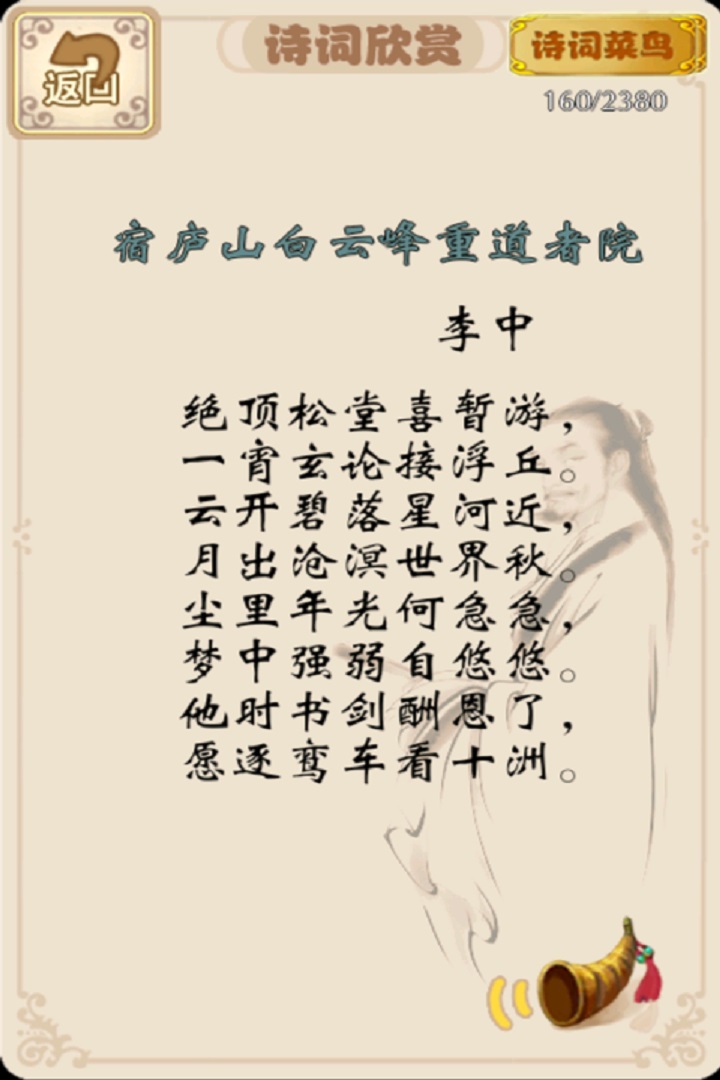 返回
诗词欣赏
诗词菜鸟
160/2380
宿庐山白云峰重道者院
李中
绝顶松堂喜暂游，
一宵玄论接浮丘。
云开碧落星河近，
月出沧溟世界秋。
尘里年光何急急，
梦中强弱自悠悠。
他时书剑酬恩了，
愿逐鸾车看十洲。